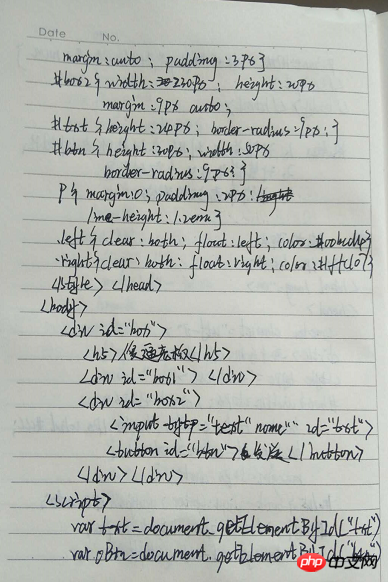 Date No.
margin:auto; padding:3px}
#box2{width:230px; height:20px
margin:9px auto;
#txt{height:24px; border-radius:9px;}
#btn{height:30px; width:50px
border-radius:9px;}
p{margin:0; padding:2px;
line-height:1.2em}
.left{clear:both; float:left; color:#00bcd4}
.right{clear:both; float:right; color:#ffc107}
</style> </head>
<body>
<div id="box">
<h5> </h5>
<div id="box1"> </div>
<div id="box2">
<input type="text" name="" id="txt">
<button id="btn"> </button>
</div></div>
<script>
var txt=document.getElementById("txt")
var oBtn=document.getElementById("btn")
php中文网